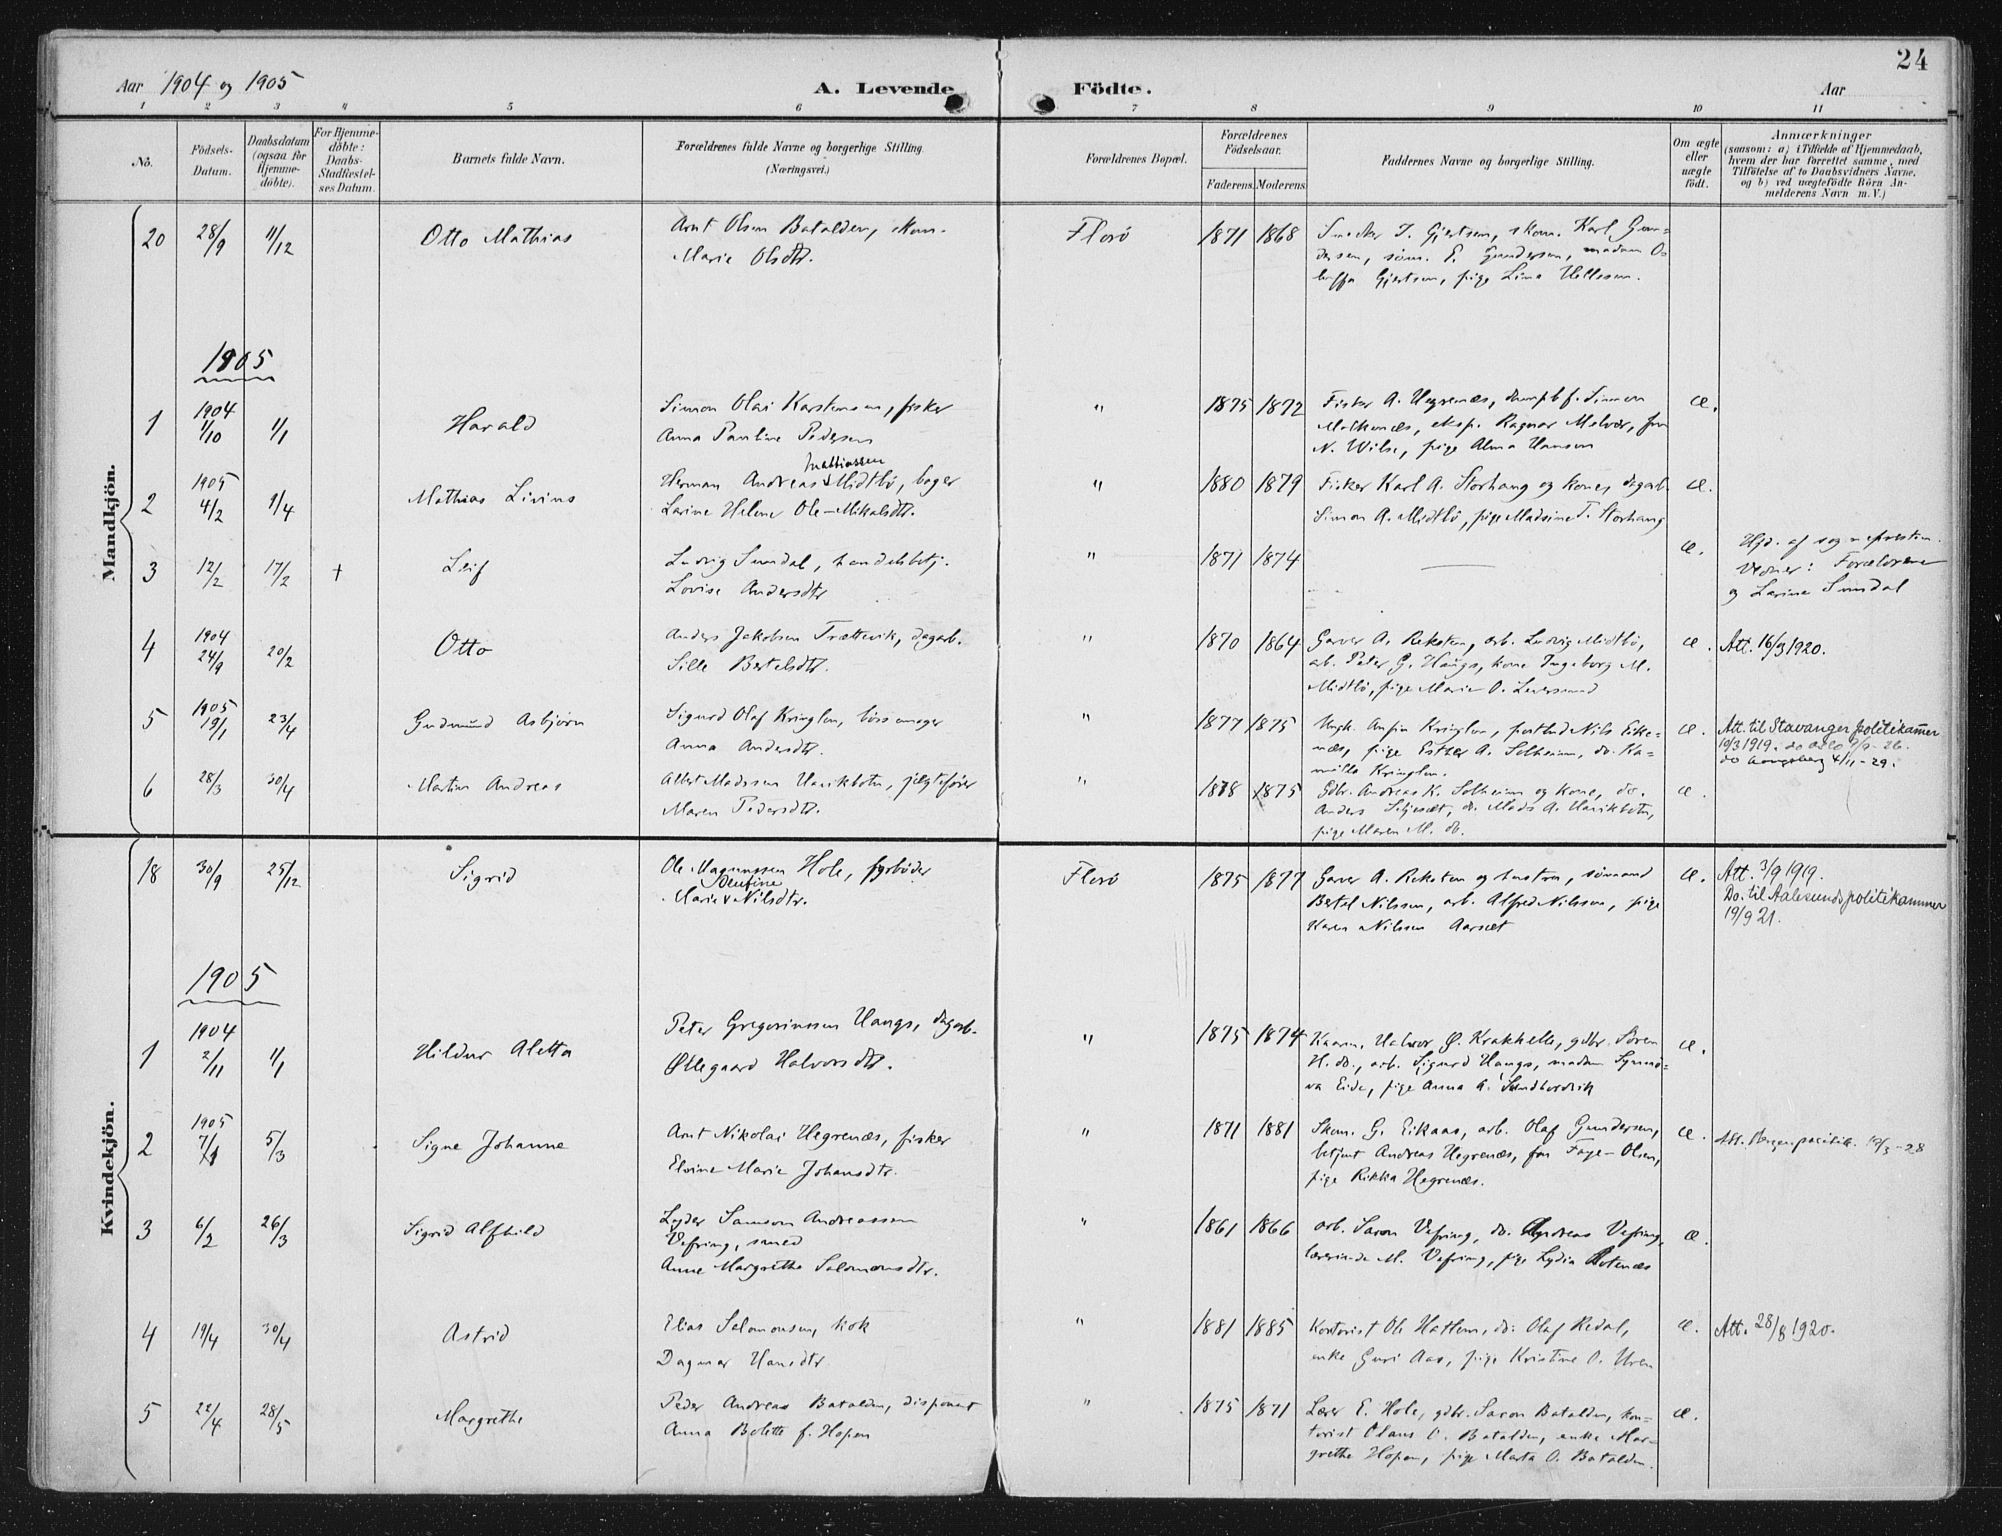 24
Aar 1904 og 1905 A. Levende Födte. Aar
1 2 3 4 5 6 7 8 9 10 11
Nò. Födsels-Datum. Daabsdatum (ogsaa for Hjemmedöbte). For Hjemmedöbte: Daabs-Stadfæstelses Datum. Barnets fulde Navn. Forældrenes fulde Navne og borgerlige Stilling (Næringsvei.) Forældrenes Bopæl. Forældrenes Födselsaar. Faderens Moderens Faddernes Navne og borgerlige Stilling. Om ægte eller uægte födt. Anmærkninger (saasom: a) i Tilfælde af Hjemmedaab, hvem der har forrettet samme, med Tilföielse af to Daabsvidners Navne, og b) ved uægtefödte Börn Anmelderens Navn m. V.)
Mandkjön.
20 28/9 11/12 Otto Mathias Arnt Olsen Batalden, skom. Florö 1871 1868 Snedker J. Gjertsen, skom. Karl Gun-
Marie Olsdtr. dersen, söm. E. Gundersen, madam O-
Gjertsen, pige Lina Hellesen.
1905
1 1904 1/10 1/1 Harald Simon Olai Karstensen, fisker " 1875 1872 Fisker A. Hegrenæs, dampb.f. Simon æ.
Anna Pauline Pedersen Molkenæs, eksp. Ragnar Melvær, fru
N. Wilse, pige Alma Hansen
2 1905 4/2 9/4 Mathias Livius Herman Andreas Mathiassen Midtbö, bager " 1880 1879 Fisker Karl A. Storhaug og kone, dagarb. æ.
Larine Helene Ole-Mikalsdtr. Simon A. Midtbö, pige Madsine T. Storhaug
3 12/2 17/2 + Leif Ludvig Sundal, handelsbetj. " 1871 1874 æ. Hjd. af sognepresten.
Lovise Andersdtr Vidner: Forældrene
og Larine Sundal
4 1904 24/9 20/2 Otto Anders Jakobsen Trættevik, dagarb. " 1870 1864 Garver A. Reksten, arb. Ludvig Midtbö, æ. Att. 16/3 1920.
Sille Bertelsdtr. arb. Peter G. Haugs, kone Ingeborg M.
Midtbö, pige Marie O. Leversund
5 1905 19/1 23/4 Gudmund Asbjørn Sigurd Olaf Kringlen, bössemager " 1877 1875 Ungk. Anfin Kringlen, postbud Nils Eike- æ. Att. til Stavanger politikammer
Anna Andersdtr. næs, pige Esther A. Solheim, do. Ka- 10/3 1919. do Oslo 9/9-26.
milla Kringlen. do Kongsberg 4/11-29.
6 28/3 30/4 Martin Andreas Albert Madssen Havikbotn, jægtefører " 1878 1875 Gdbr. Andreas K. Solheim og kone, do. æ.
Maren Pedersdtr. Anders Schjesæt, do. Mads A. Havikbotn,
pige Maren M. do.
Kvindekjön.
18 30/9 25/12 Sigrid Ole Magnussen Hole, fyrböder Florö 1875 1877 Garver A. Reksten og hustru, sömand æ. Att. 3/9 1919.
Marie Nilsdtr. Bertel Nilssen, arb. Alfred Nilssen, pige Do. til Aalesunds politikammer
Karen Nilssen Aarsæt 19/9 21.
1905
1 1904 2/11 1/1 Hildur Aletta Peter Gregoriussen Haugs, dagarb. " 1875 1874 Kaarm. Halvor Ø. Krakhelle, gdbr. Sören æ.
Øllegaard Halvorsdtr. H. do., arb. Sigurd Haugs, madam Synnö-
va Eide, pige Anna A. Sandbordvik
2 1905 7/1 5/3 Signe Johanne Arnt Nikolai Hegrenæs, fisker " 1871 1881 Skom. G. Eikaas, arb. Olaf Gundersen, æ. Att. Bergen politik. 19/3-28
Elvine Marie Johansdtr. betjent Andreas Hegrenæs, fru Faye-Olsen,
pige Rikka Hegrenæs.
3 6/2 26/3 Sigrid Alfhild Lyder Samson Andreassen " 1861 1866 arb. Saron Vefring, do. Andreas Vefring, æ.
Vefring, smed lærerinde M. Vefring, pige Lydia Rotenæs
Anne Margrethe Salomonsdtr.
4 19/4 30/4 Astrid Elias Salomonsen, kok " 1881 1885 Kontorist Ole Hatlem, do. Olaf Redal, æ. Att. 28/8 1920.
Dagmar Hansdtr enke Guri Aas, pige Kristine O. Uren
5 22/4 28/5 Margrethe Peder Andreas Batalden, disponent " 1875 1871 Lærer E. Hole, gdbr. Saron Batalden, kon- æ.
Anna Bolette f. Hopen torist Claus O. Batalden, enke Mar-
grethe Hopen, pige Marta O. Batalden.